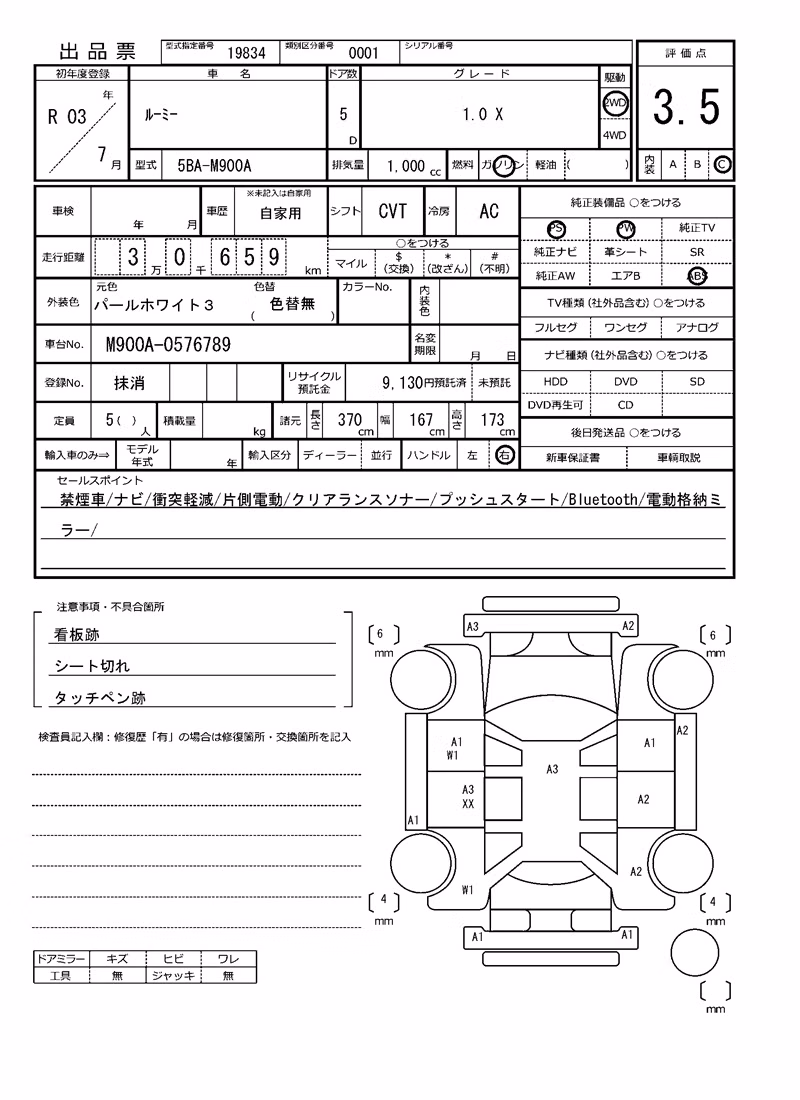 出品票 型式指定番号 19834 類別区分番号 0001 シリアル番号
評価点
3.5
内装 A B C
初年度登録 車名 ドア数 グレード 駆動
R 03 年 ルーミー 5 D 1.0 X 2WD
7 月 4WD
型式 5BA-M900A 排気量 1,000 cc 燃料 ガソリン 軽油 ( )
車検 年 月 車歴 ※未記入は自家用 自家用 シフト CVT 冷房 AC
走行距離 3 万 0 千 6 5 9 km ○をつける
マイル $(交換) *(改ざん) #(不明)
外装色 元色 パールホワイト3 色替 ( 色替無 ) カラーNo. 内装色
車台No. M900A-0576789 名変期限 月 日
登録No. 抹消 リサイクル預託金 9,130円預託済 未預託
定員 5( ) 人 積載量 kg 諸元 長さ 370 cm 幅 167 cm 高さ 173 cm
輸入車のみ⇒ モデル年式 年 輸入区分 ディーラー 並行 ハンドル 左 右
純正装備品 ○をつける
PS PW 純正TV
純正ナビ 革シート SR
純正AW エアB ABS
TV種類(社外品含む)○をつける
フルセグ ワンセグ アナログ
ナビ種類(社外品含む)○をつける
HDD DVD SD
DVD再生可 CD
後日発送品 ○をつける
新車保証書 車輌取説
セールスポイント
禁煙車/ナビ/衝突軽減/片側電動/クリアランスソナー/プッシュスタート/Bluetooth/電動格納ミ
ラー/
注意事項・不具合箇所
看板跡
シート切れ
タッチペン跡
検査員記入欄:修復歴「有」の場合は修復箇所・交換箇所を記入
ドアミラー キズ ヒビ ワレ
工具 無 ジャッキ 無
A3 A2
6 mm
6 mm
A2
A1
W1
A1
A3
A3
XX
A2
A1
W1
A2
4 mm
4 mm
A1 A1
mm